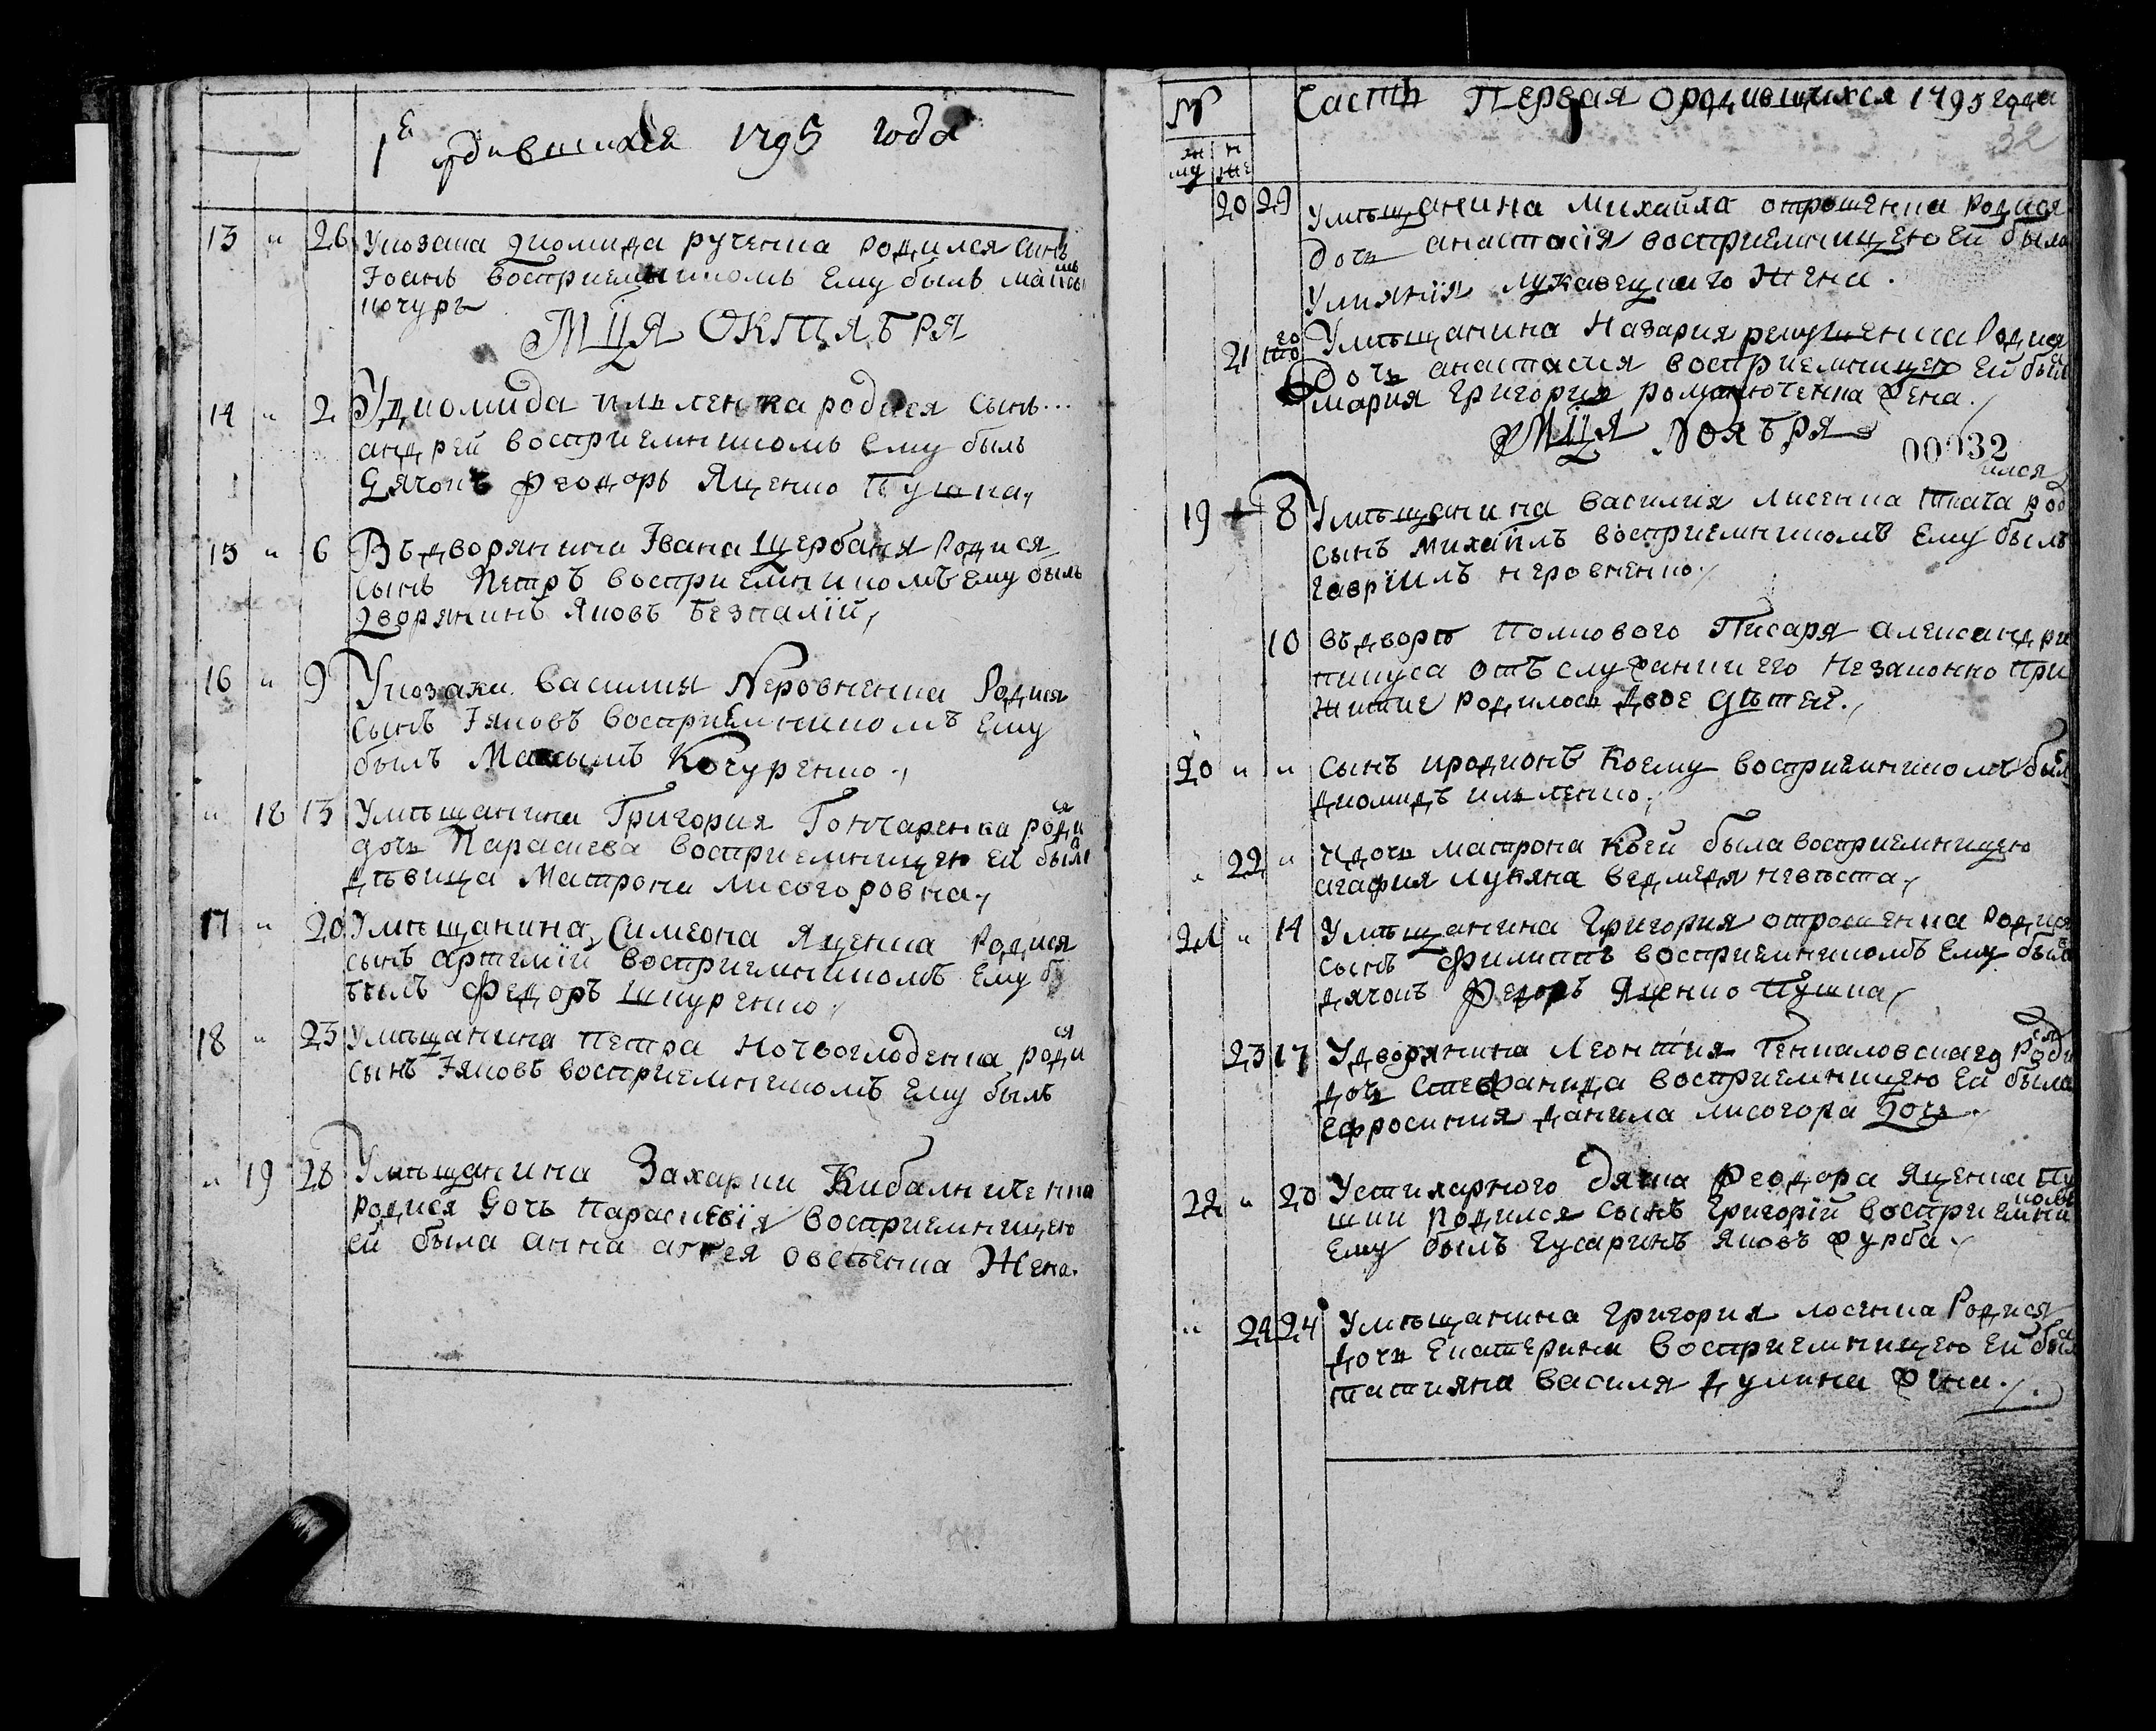 1795 года
13 " 26 Укозака Диомида рученка родился сынъ
Іоанъ восприемникомъ Ему былъ
кочуръ
Мця Октября
14 " 2 У Диомида ильленка родися сынъ...
андрей восприемникомъ Ему былъ
Дячокъ Феодоръ Яценко Пушка,
15 " 6 Въ дворянина Івана Щербаня Родися
сынъ Петръ восприемникомъ Ему былъ
Дворянинъ Яковъ Безпалій,
16 " 9 Укозака Василия Неровненка Родися
Сынъ Іяковъ восприемникомъ Ему
былъ Максымъ Кочуренко.,
" 18 13 Умѣщанина Григория Гончаренка роди ся
дочь Параскева восприемницею ей была
дѣвица Матрона Лисогоровна.,
17 " 20 Умѣщанина Симеона Яценка Родися
сынъ артемій восприемникомъ Ему б
былъ Федоръ Шкуренко.,
18 " 23 Умѣщанина Петра Ночвоглоденка роди ся
Сынъ Іяковъ восприемникомъ Ему былъ
" 19 28 Умѣщанина Захарии Кибалниченка
Родися Дочь Параскевія восприемницею
ей была анна Овсѣенка Жена.
№ Часть Первая О родившихся 1795 года
32
20 29 Умѣщанина Михайла отрошенка Родися
дочь анастасія восприемницею Ей была
Улиянія лукавецкаго Жена.
21 Умѣщанина Назария Родися
Дочь анастасия восприемницею Ей была
мария Григория романюченка Жена.,
Мця Ноября
00032
19 8 Умѣщанина василия лисенка Ткача род ился
сынъ Михаилъ восприемникомъ Ему былъ
гавріилъ неровненко.,
10 въ дворѣ Полкового Писаря александра
отъ служанки его незаконно при
житие родилось Двое Дѣтей.,
20 " " сынъ иродионъ Коему восприемникомъ былъ
диомидъ ильленко.,
" 22 " Идочь матрона Коей была восприемницею
агафия лукяна ведмедя невѣста.,
21 " 14 Умѣщанина Григория отрошенка Родися
сынъ Филиппъ восприемникомъ Ему былъ
дячокъ Федоръ Яценко Пушка,
23 17 Удворянина Леонтия Роди ся
дочь Стефанида восприемницею Ей была
Ефросиния данила лисогора Дочь.
22 " 20 Устихарного Дяка Феодора Яценка Пу
шки Родился сынъ Григорій восприемни комъ
Ему былъ Гусаринъ Яковъ Журба.,
" 24 24 Умѣщанина Григория лосенка Родися
дочь Екатерина восприемницею Ей была
татияна василя дулина Жена./.